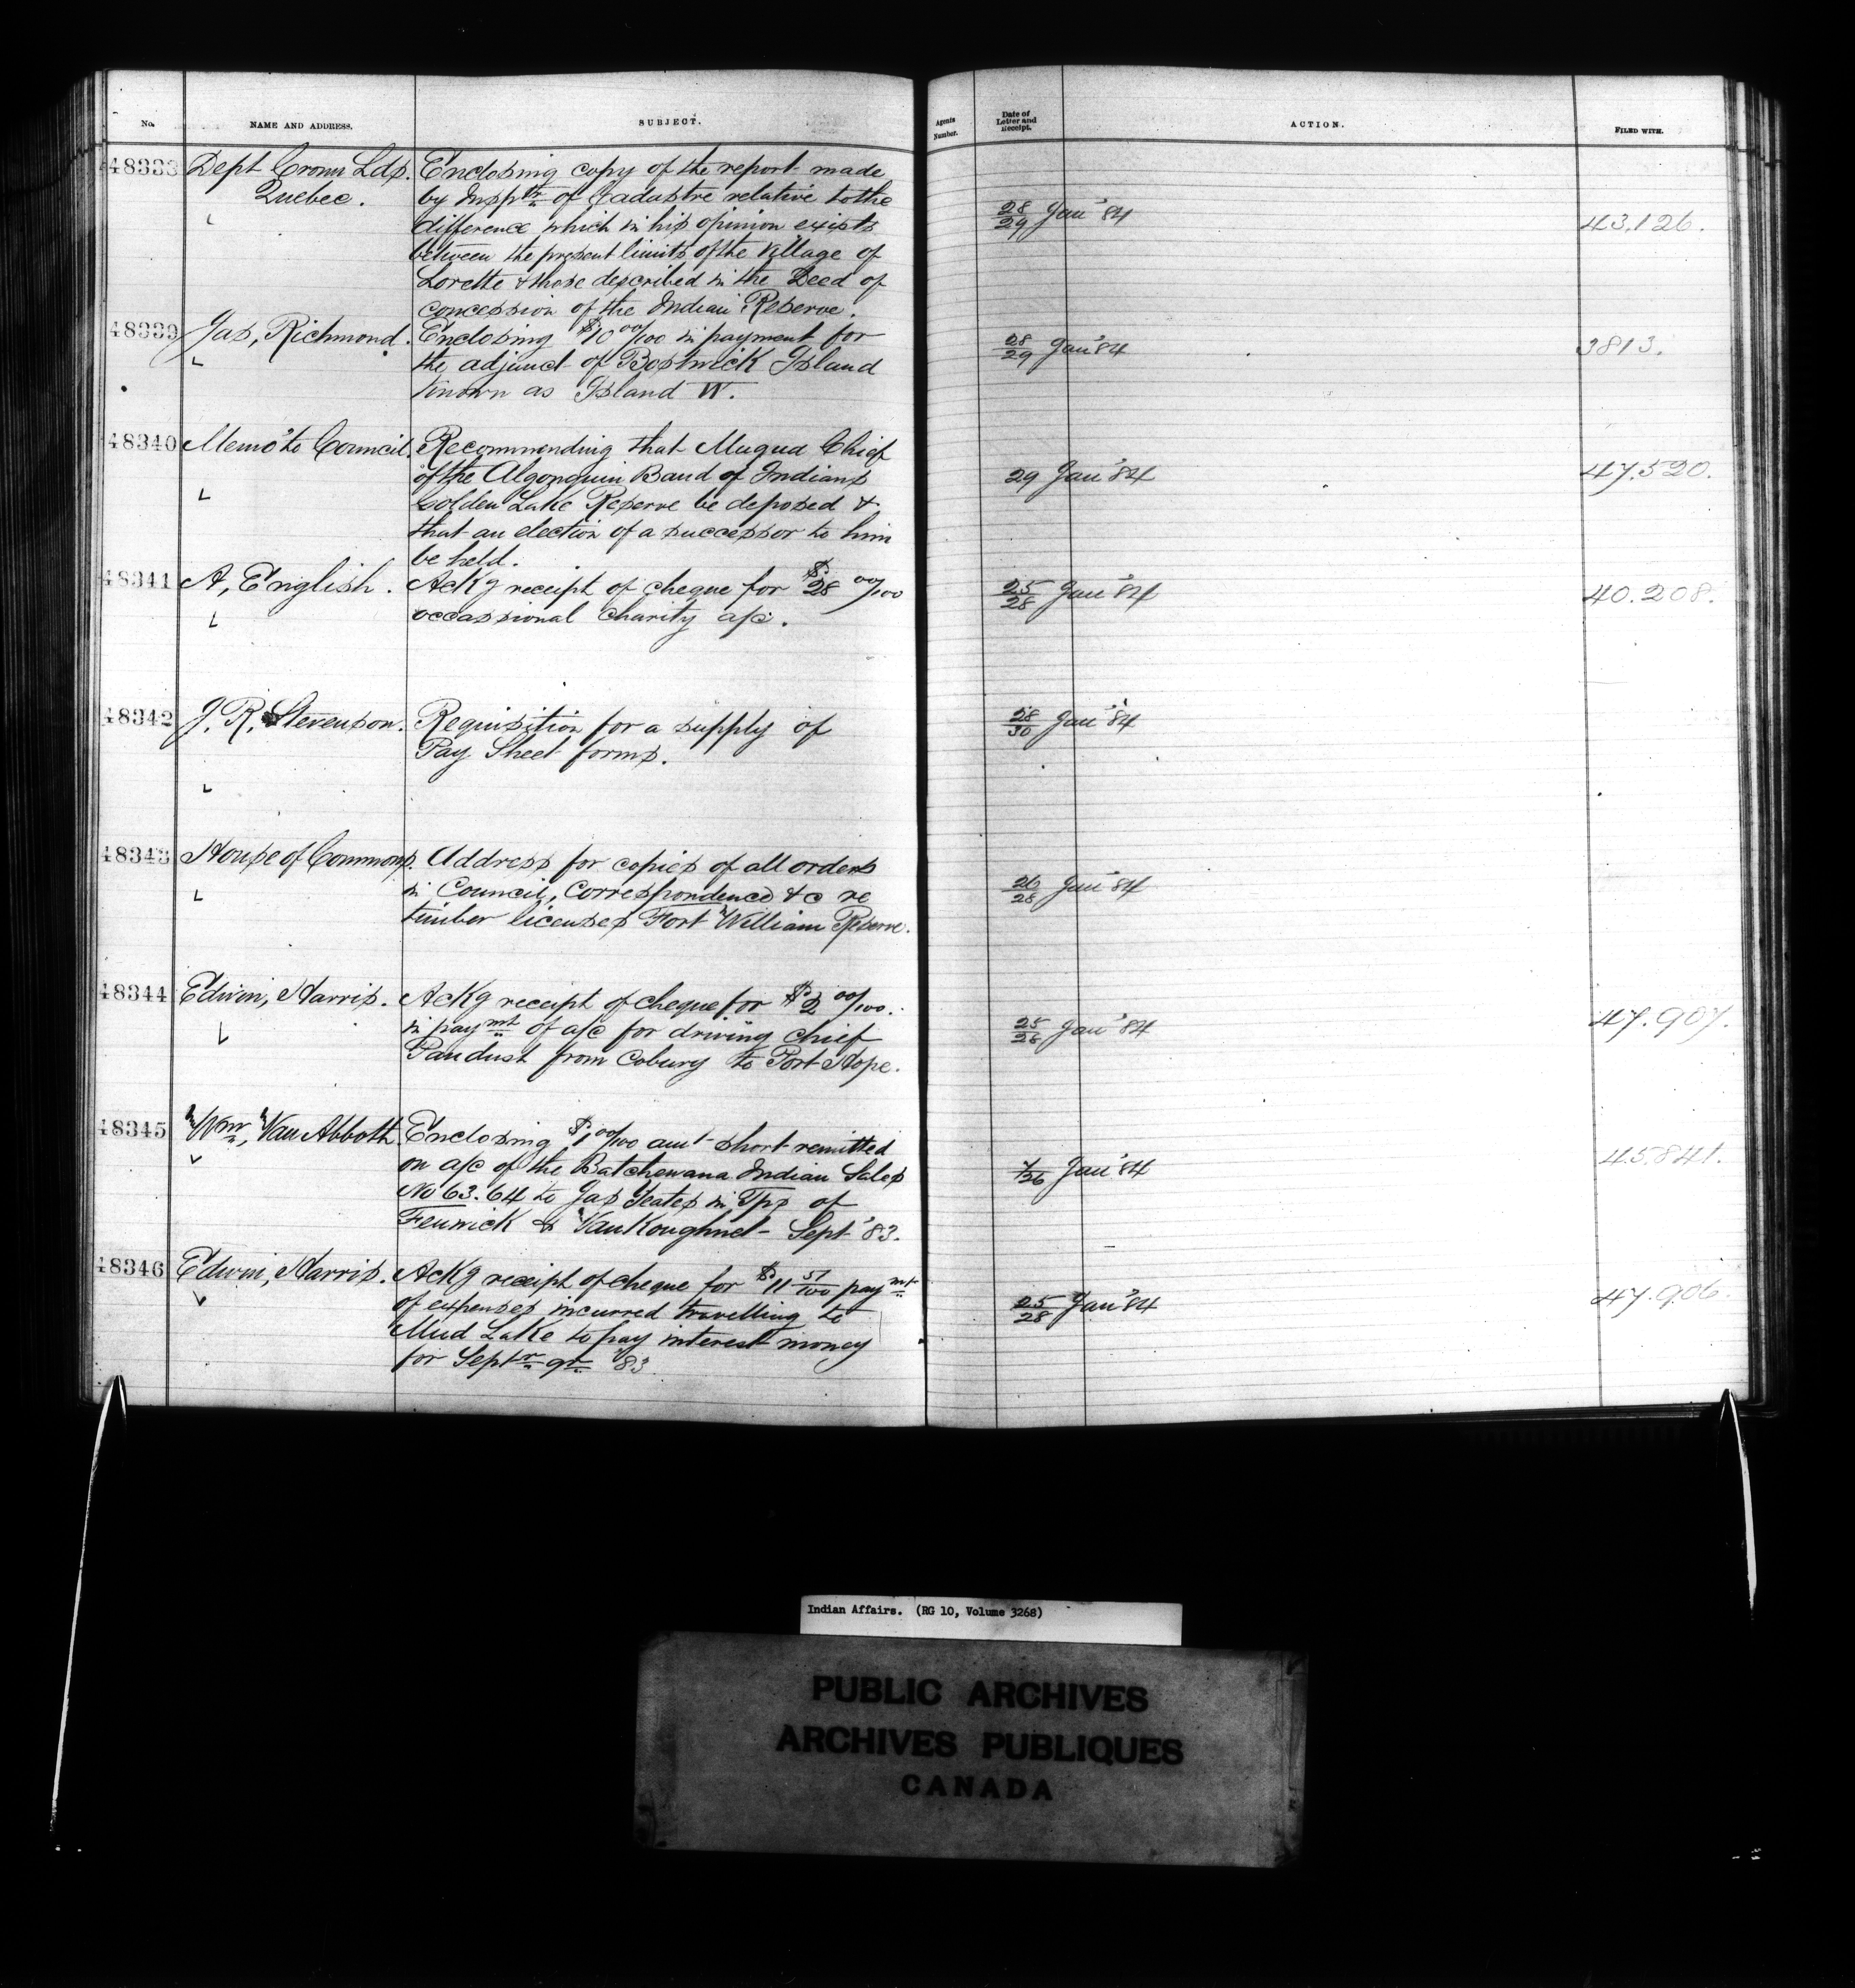 No. NAME AND ADDRESS. SUBJECT. Agents Number. Date of Letter and Receipt. ACTION. FILED WITH.
48338 Dept Crown Lds. Enclosing copy of the report made
Quebec. by Insptr of Cadastre relative to the
difference which in his opinion exists 28/29 Jan' 84 43.126.
between the present limits of the Village of
Lorette & those described in the Deed of
concession of the Indian Reserve.
48339 Jas, Richmond. Enclosing $10 00/100 in payment for
the adjunct of Bostwick Island 28/29 Jan' 84 3813.
known as Island W.
48340 Memo to Council. Recommending that Muqua Chief
of the Algonquin Band of Indians 29 Jan' 84 47.520.
Golden Lake Reserve be deposed &
that an election of a successor to him
be held.
48341 A, English. Ackg receipt of cheque for $28 00/100 25/28 Jan' 84 40.208.
occassional charity a/c.
48342 J. R. Stevenson. Requisition for a supply of 28/30 Jan' 84
Pay Sheet forms.
48343 House of Commons. Address for copies of all orders
in Council, Correspondence &c re 26/28 Jan' 84
timber licenses Fort William Reserve.
48344 Edwin, Harris. Ackg receipt of cheque for $2 00/100.
in paymt of a/c for driving chief 25/28 Jan' 84 47.907.
Paudust from Coburg to Port Hope.
48345 Wm, Van Abbott. Enclosing $1 00/100 amt short remitted
on a/c of the Batchewana Indian Sales 7/26 Jan' 84 45.841.
No 63.64 to Jas Yeates in Tps of
Fenwick & VanKoughnet - Sept '83.
48346 Edwin, Harris. Ackg receipt of cheque for $11 57/100 paymt
of expenses incurred travelling to 25/28 Jan' 84 47.906.
Mud Lake to pay interest money
for Septr qr 83
Indian Affairs. (RG 10, Volume 3268)
PUBLIC ARCHIVES
ARCHIVES PUBLIQUES
CANADA